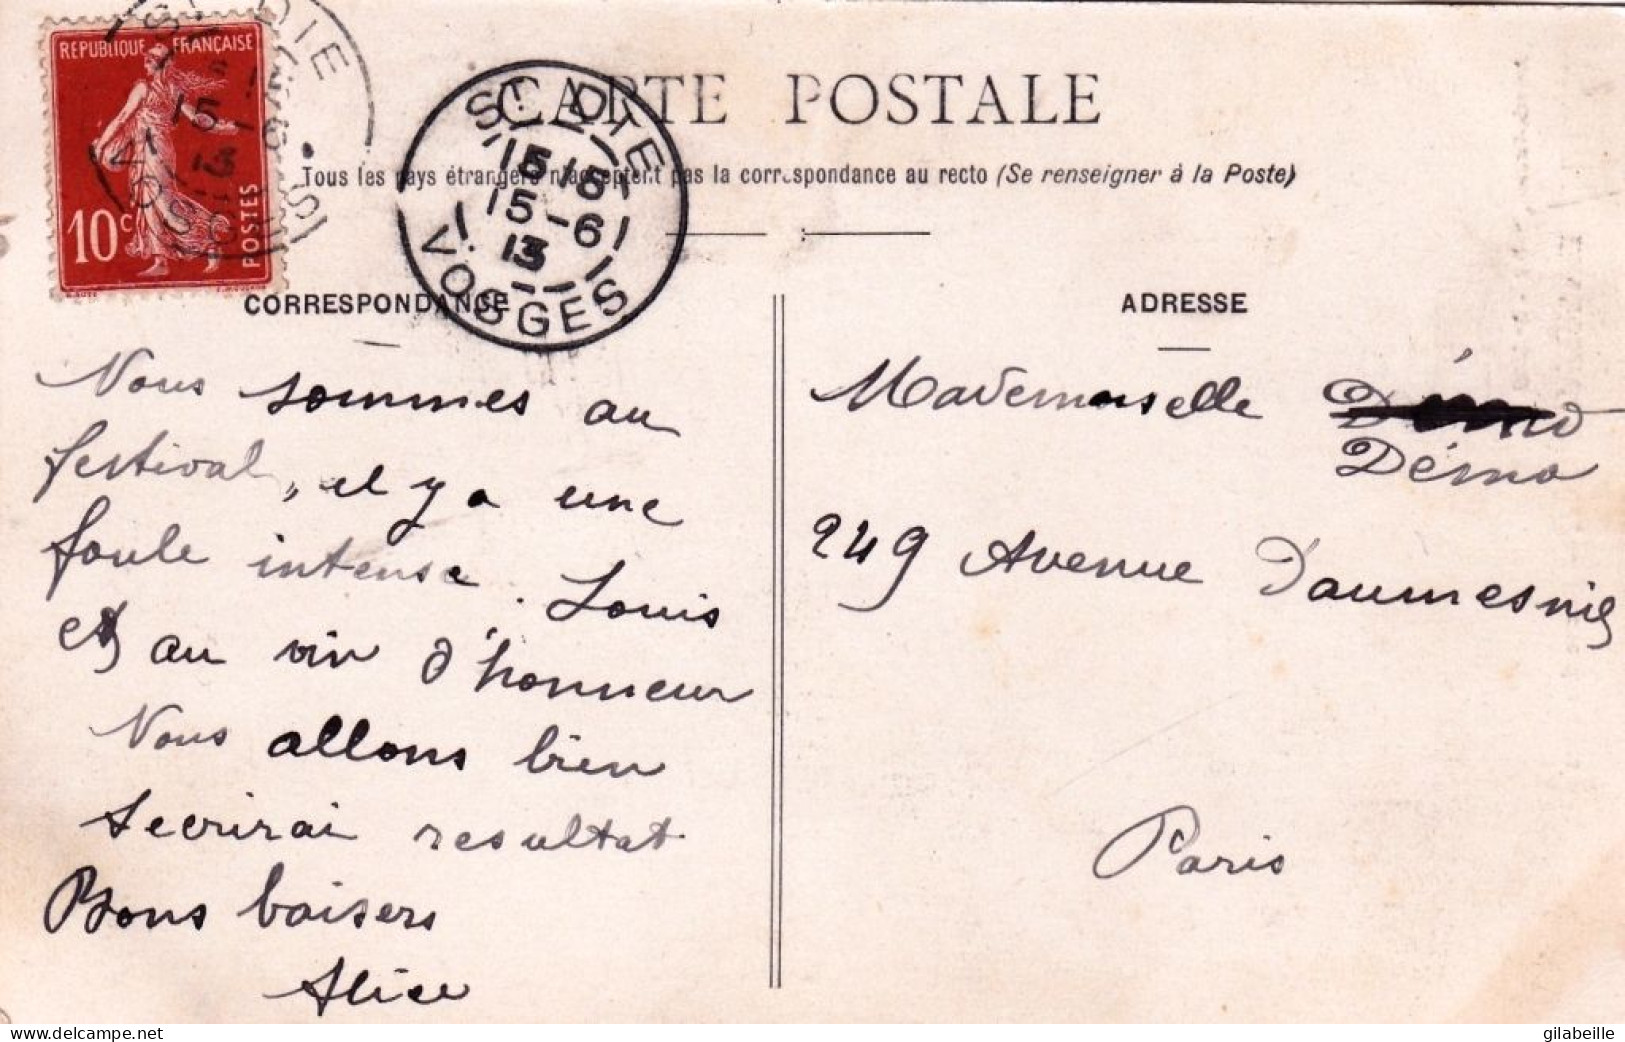 REPUBLIQUE FRANÇAISE
10c POSTES
ST DIE
15
13
VOSGES
ST DIE
15 15
15-6
13
VOSGES
CARTE POSTALE
Tous les pays étrangers n'acceptent pas la correspondance au recto (Se renseigner à la Poste)
CORRESPONDANCE
Nous sommes au
festival, il y a une
foule intense. Louis
est au vin d'honneur
Nous allons bien
Jecrirai resultat
Bons baisers
Alice
ADRESSE
Mademoiselle Démo
Démo
249 Avenue Daumesnil
Paris
delcampe.net
gilabeille